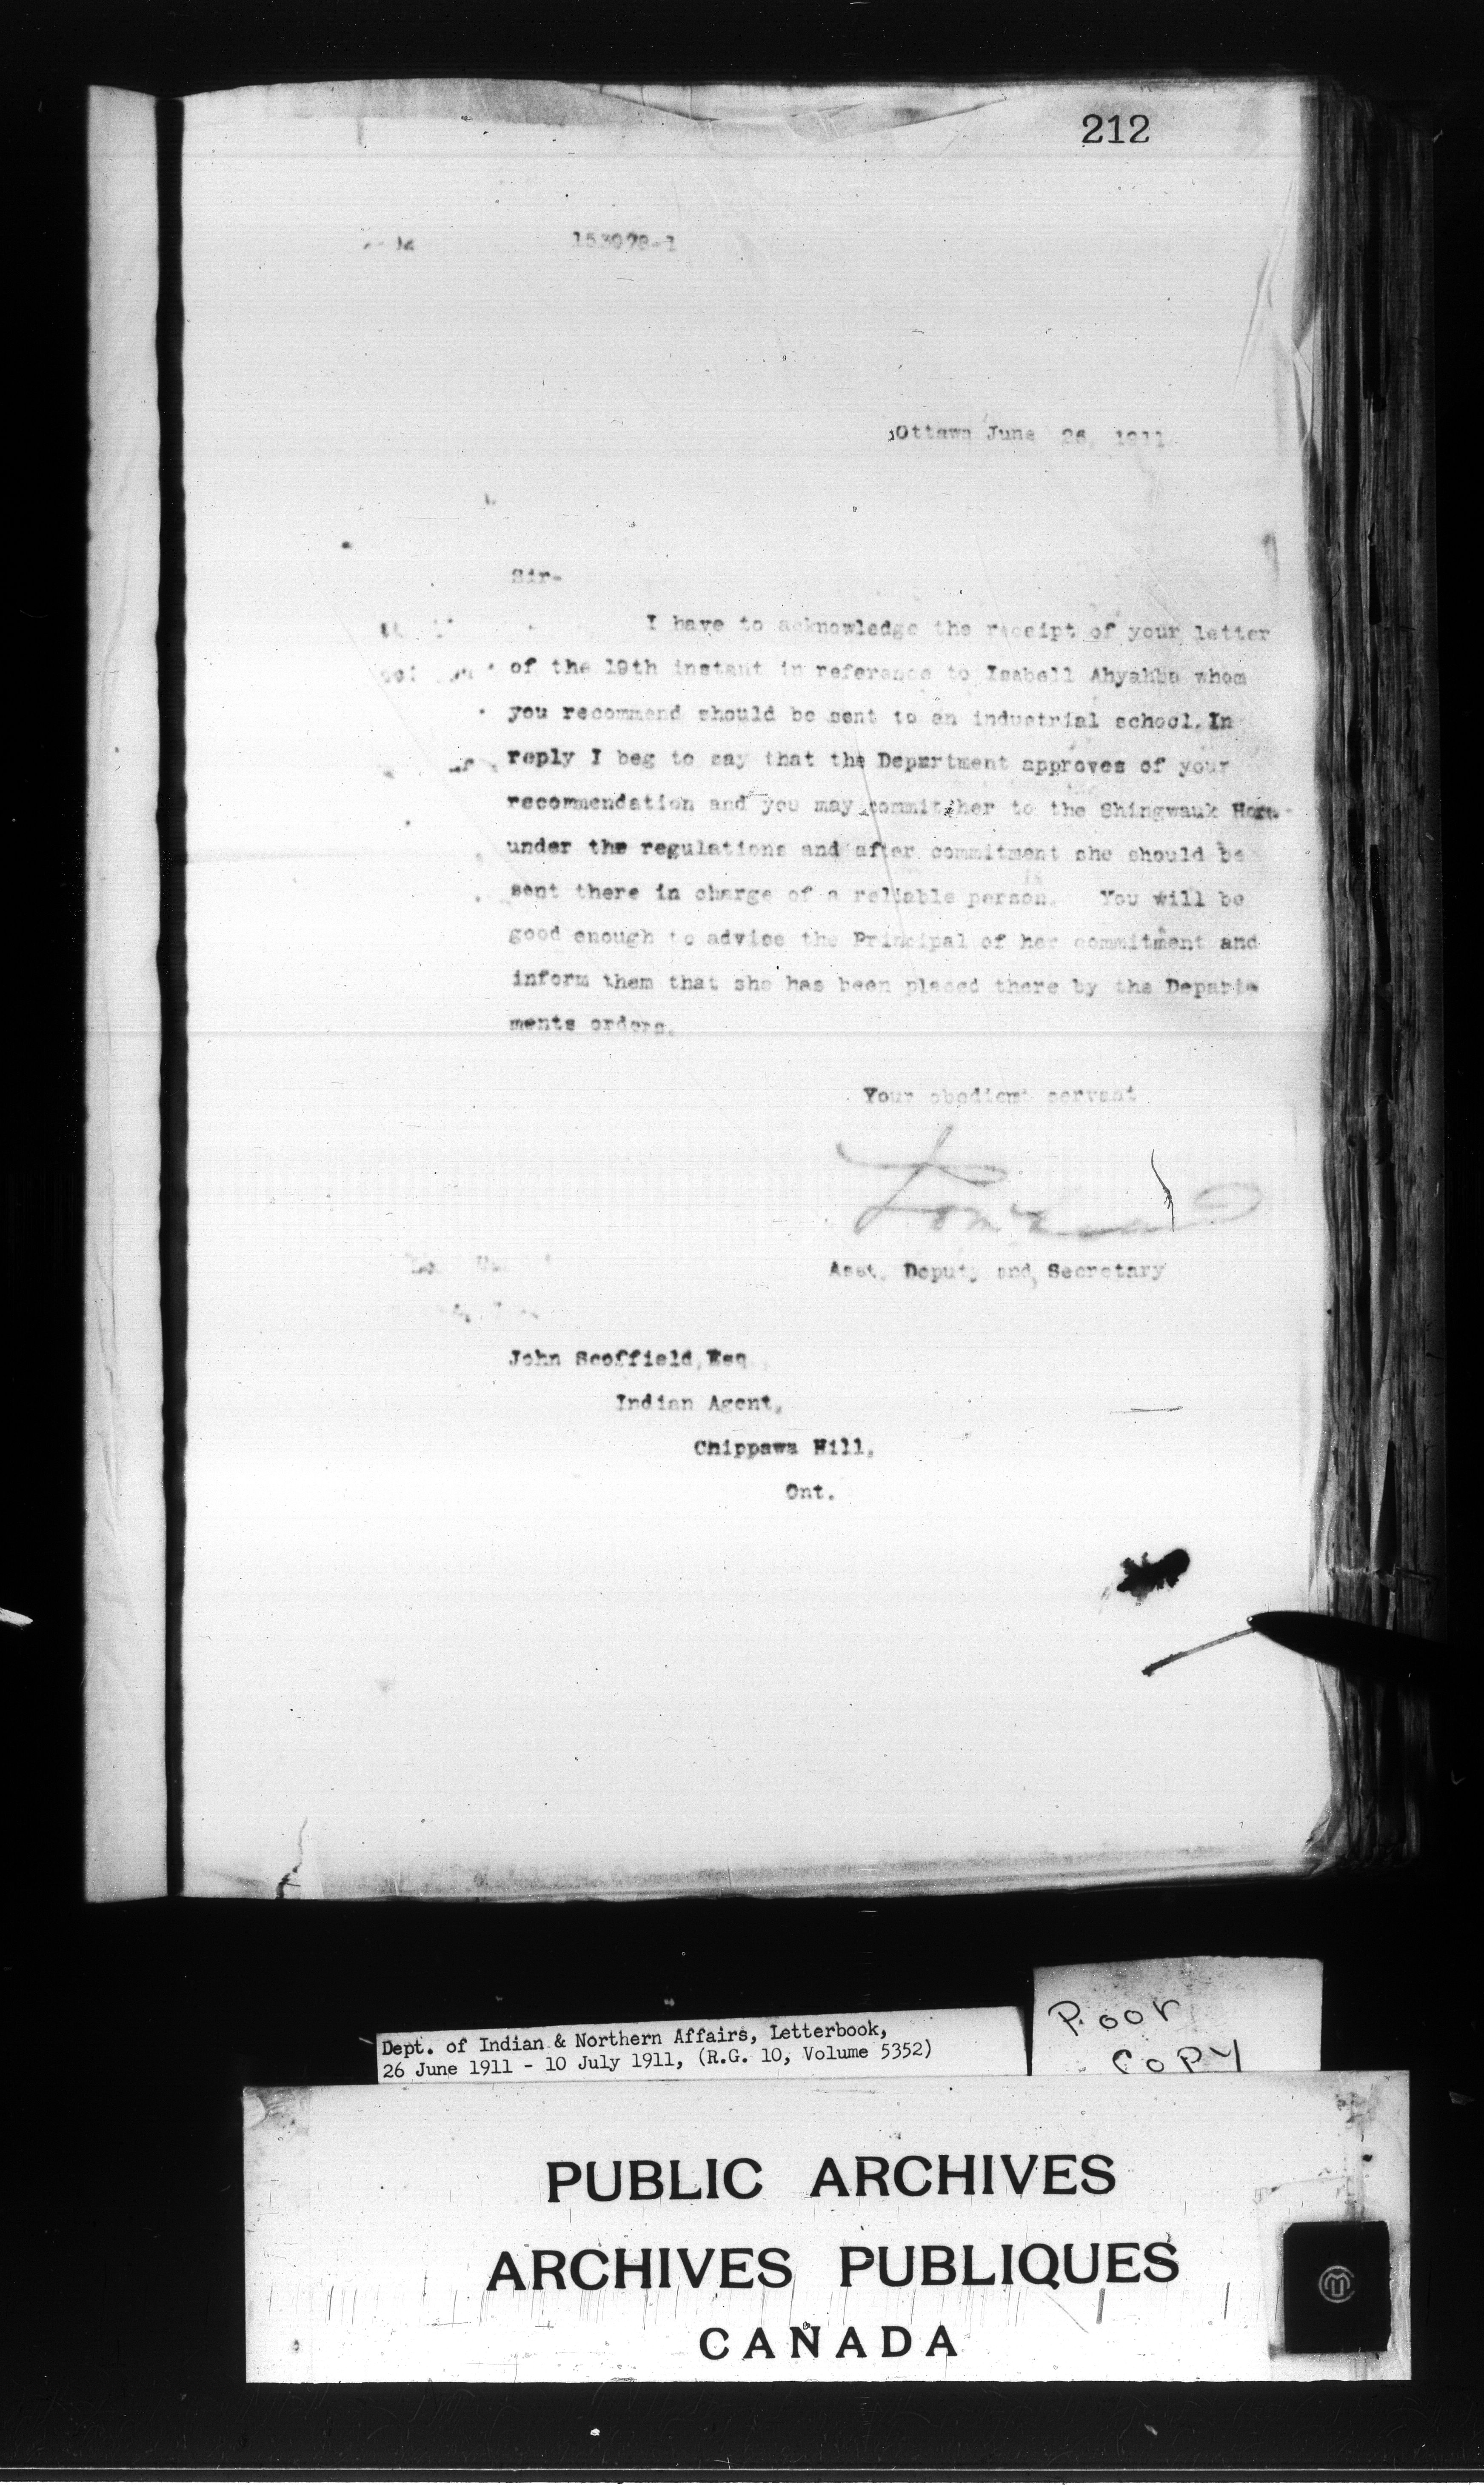 212
153078-1
Ottawa June 26, 1911.
Sir-
I have to acknowledge the receipt of your letter
of the 19th instant in reference to Isabell Ahyahba whom
you recommend should be sent to an industrial school. In
reply I beg to say that the Department approves of your
recommendation and you may commit her to the Shingwauk Home
under the regulations and after commitment she should be
sent there in charge of a reliable person. You will be
good enough to advise the Principal of her commitment and
inform them that she has been placed there by the Depart-
ments orders.
Your obedient servant
Asst. Deputy and Secretary
John Scoffield, Esq
Indian Agent,
Chippawa Hill,
Ont.
Dept. of Indian & Northern Affairs, Letterbook,
26 June 1911 - 10 July 1911, (R.G. 10, Volume 5352)
Poor
Copy
PUBLIC ARCHIVES
ARCHIVES PUBLIQUES
CANADA